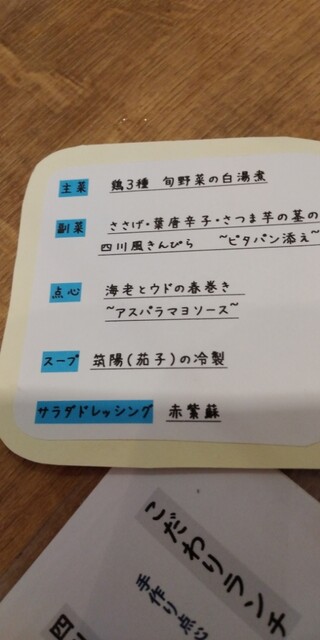 主菜 鶏3種 旬野菜の白湯煮
副菜 ささげ・葉唐辛子・さつま芋の茎の
四川風きんぴら ~ピタパン添え~
点心 海老とウドの春巻き
~アスパラマヨソース~
スープ 筑陽(茄子)の冷製
サラダドレッシング 赤紫蘇
こだわりランチ
手作り点心
四